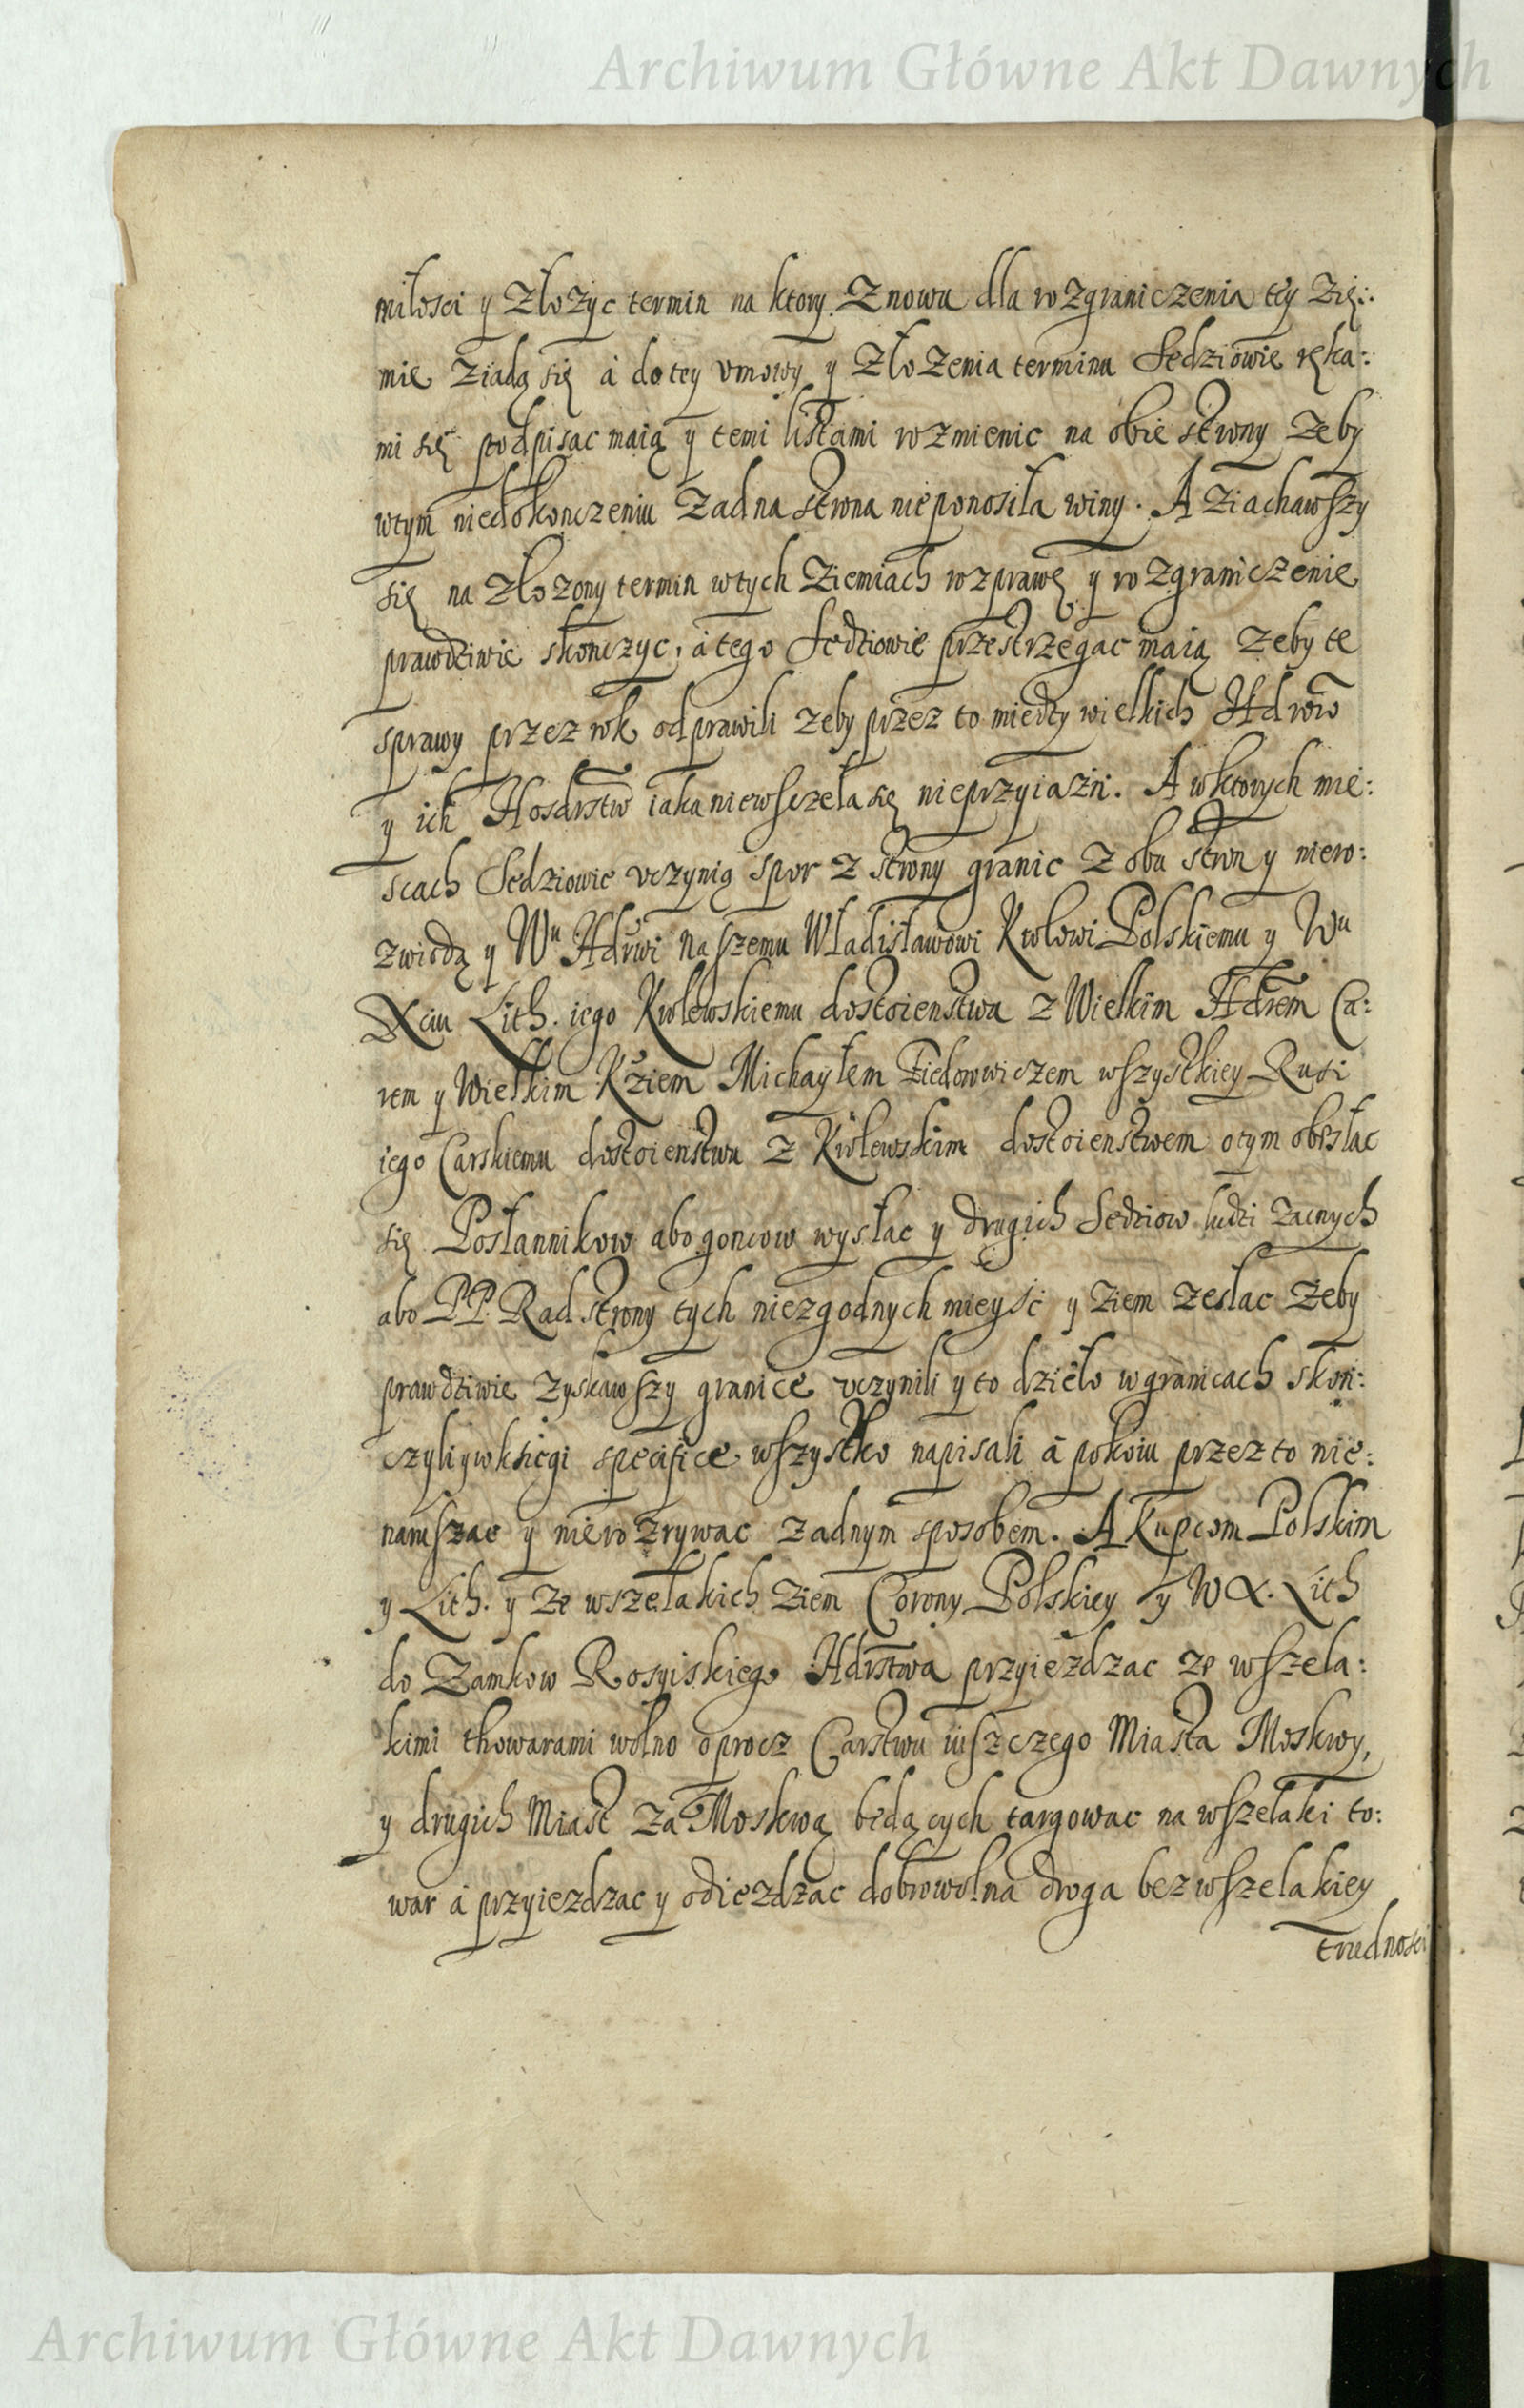 Archiwum Główne Akt Dawnych
miłosci y złozyc termin na ktory znowu dla rozgraniczenia tey zię:
mie ziadą się à do tey vmowy y złozenia terminu Sedziowie ręka:
mi się podpisac maią y temi listami rozmienic na obie strony zeby
wtym niedokonczeniu zadna strona nieponosiła winy. A ziachawszy
się na złozony termin wtych ziemiach rozprawę y rozgraniczenie
prawdziwie skonczyc, à tego Sedziowie przestrzegac maią zeby te
sprawy przez rok odprawili zeby przez to miedzy wielkich Hdrow
y ich Hosdrstw iaka niewsczeła się nieprzyiazn. A wktorych mie:
scach Sedziowie vczynią spor z strony granic z obu stron y niero:
zwiodą y Wu Hdrwi naszemu Władisławowi Krolowi Polskiemu y Wu
Xciu Lith. iego Krolewskiemu dostoienstwu z Wielkim Hdrem Ca:
rem y Wielkim Kziem Michayłem Fiedorowiczem wszystkiey Rusi
iego Carskiemu dostoienstwu z Krolewskim dostoienstwem otym obesłac
się Posłannikow abo goncow wysłac y drugich Sedziow ludzi zacnych
abo PP. Rad strony tych niezgodnych mieysc y ziem zesłac zeby
prawdziwie zyskawszy granice vczynili y to dzieło wgranicach skon:
czyli y wksiegi specifice wszystko napisali à pokoiu przez to nie:
naruszac y nierozrywac zadnym sposobem. A Kupcom Polskim
y Lith. y ze wszelakich ziem Corony Polskiey y W X. Lith
do Zamkow Rosyiskiego Hdrstwa przyiezdzac ze wszela:
kimi thowarami wolno oprocz Carstwu iuszczego Miasta Moskwy,
y drugich Miast za Moskwą bedących targowac na wszelaki to:
war à przyiezdzac y odiezdzac dobrowolna droga bez wszelakiey
trudnosci
Archiwum Główne Akt Dawnych